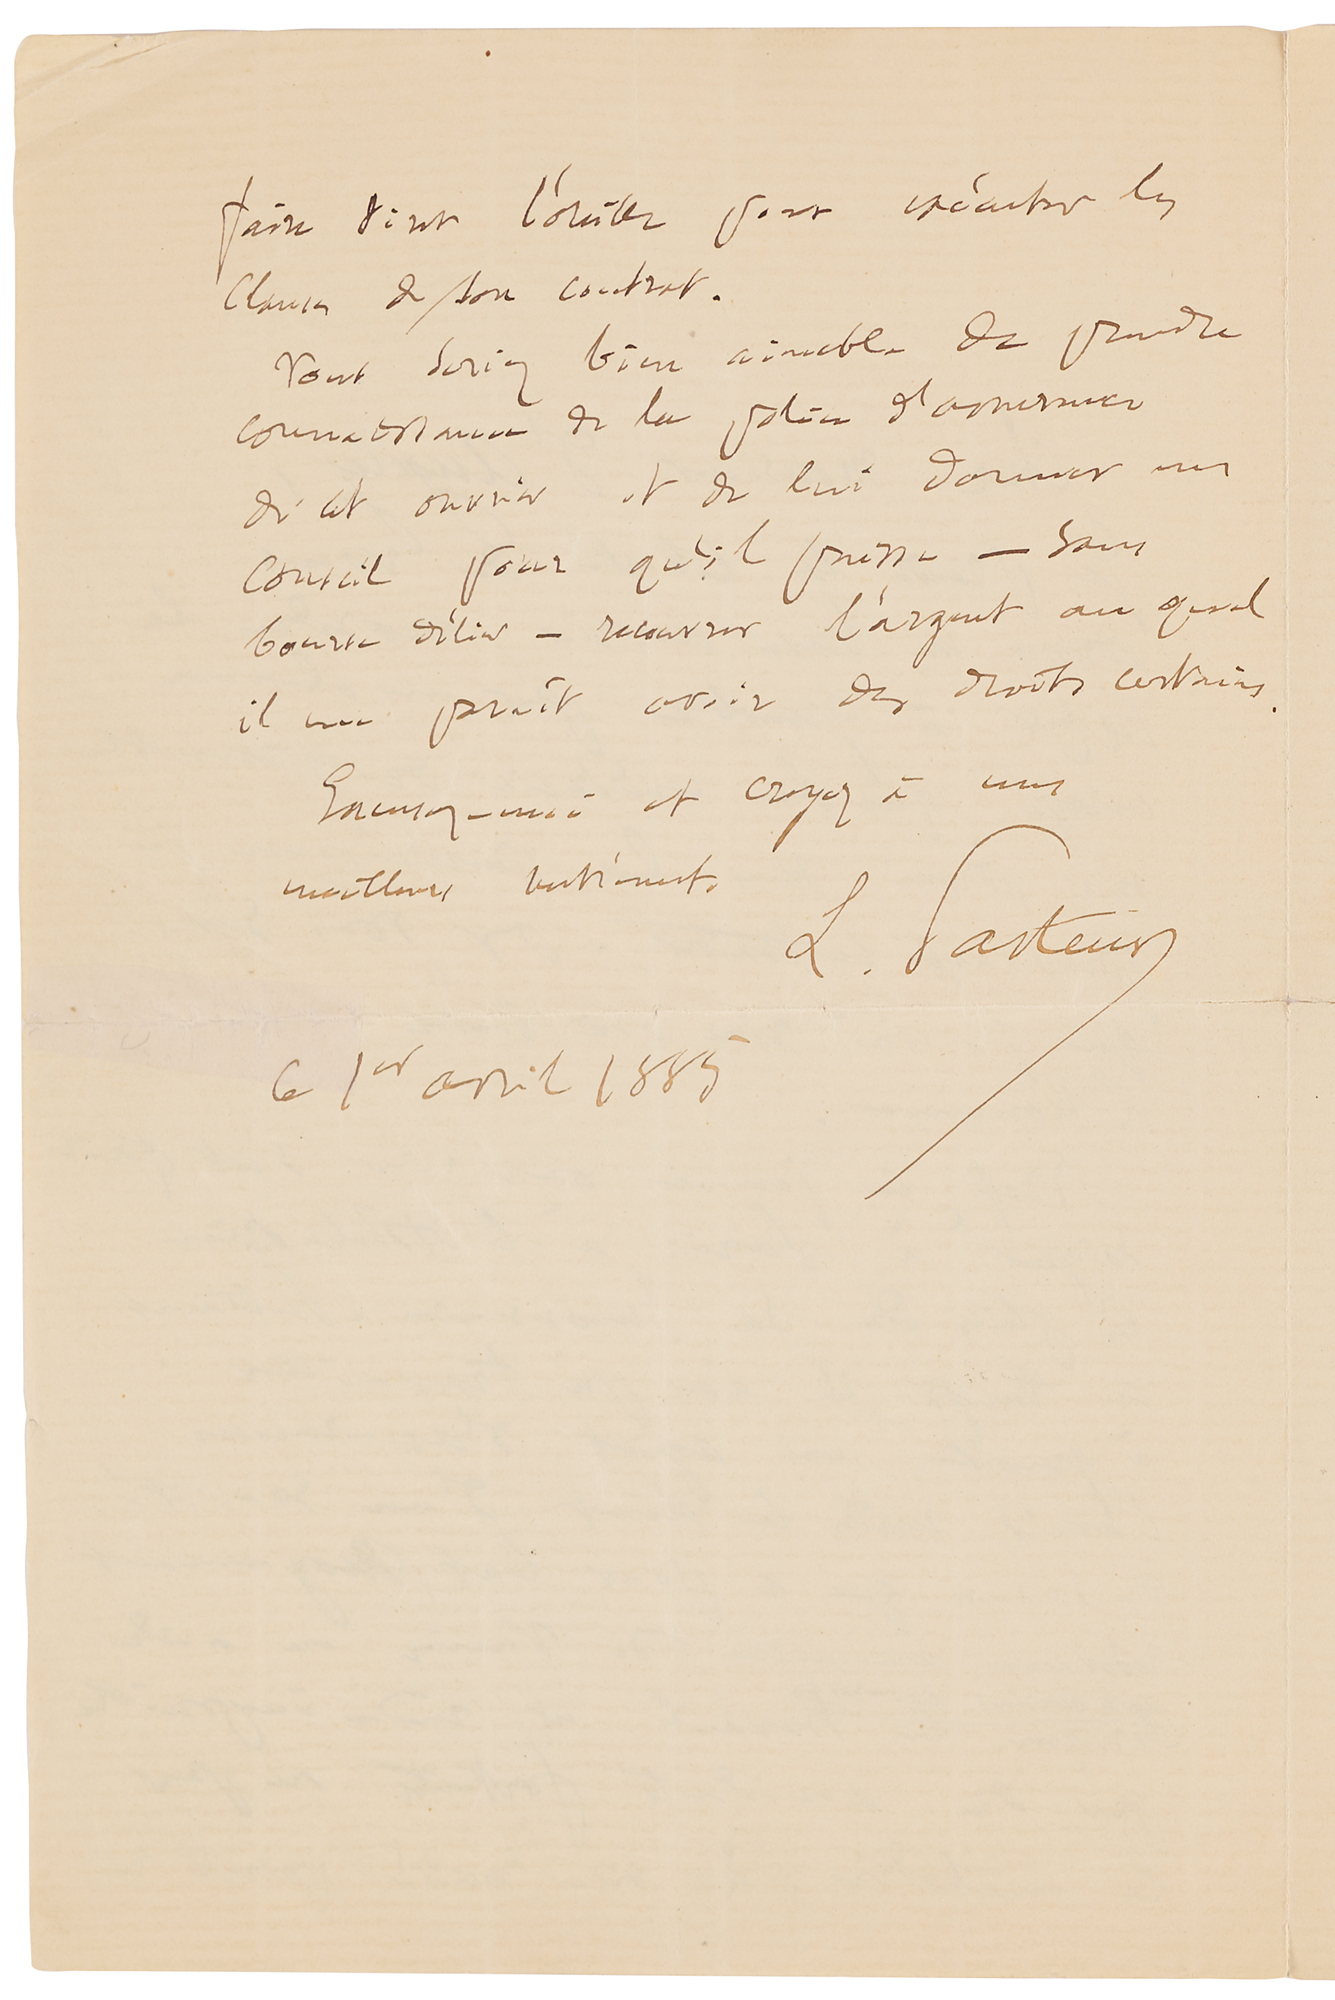 faire tirer l'oreille pour exécuter les
clauses de son contrat.
Vous seriez bien aimable de prendre
connaissance de la police d'assurance
de cet ouvrier et de lui donner un
conseil pour qu'il puisse — sans
bourse délier — recouvrer l'argent auquel
il me paraît avoir des droits certains.
Excusez-moi et croyez à mes
meilleurs sentiments.
L. Pasteur
Ce 1er avril 1885